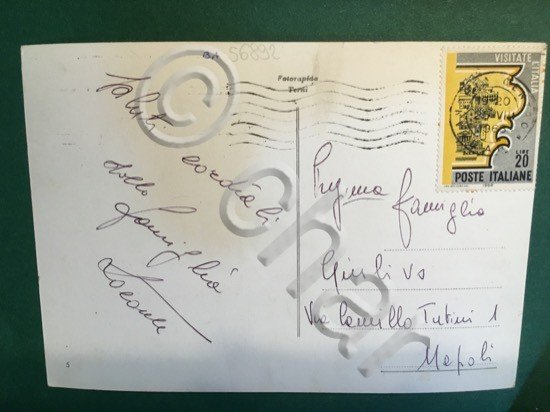 56892
Fotorapida
Terni
Saluti
cordiali
dalla
famiglia
VISITATE
L'ITALIA
LIRE
20
POSTE ITALIANE
1966
Famiglia
Via Camillo Tutini 1
Napoli
5
© char